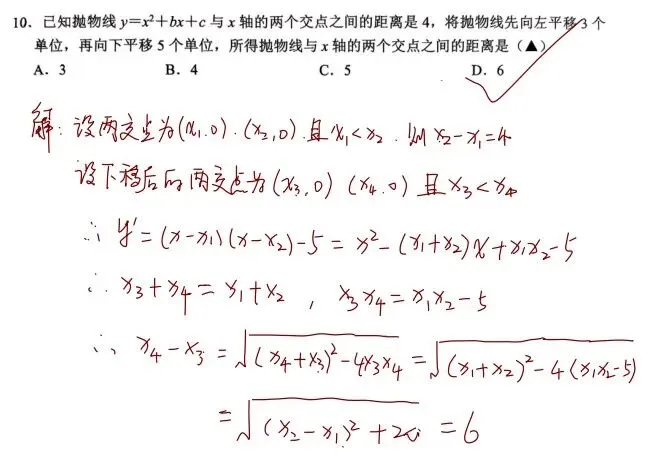 10、已知抛物线 y=x²+bx+c 与 x 轴的两个交点之间的距离是 4，将抛物线先向左平移 3 个
单位，再向下平移 5 个单位，所得抛物线与 x 轴的两个交点之间的距离是（▲）
A．3 B．4 C．5 D．6
解：设两交点为(x₁,0)．(x₂,0)．且x₁<x₂．则 x₂-x₁=4
设下移后的两交点为(x₃,0) (x₄,0) 且 x₃<x₄
∴ y'=(x-x₁)(x-x₂)-5=x²-(x₁+x₂)x+x₁x₂-5
∴ x₃+x₄=x₁+x₂，x₃x₄=x₁x₂-5
∴ x₄-x₃=√((x₄+x₃)²-4x₃x₄)=√((x₁+x₂)²-4(x₁x₂-5))
=√((x₂-x₁)²+20)=6